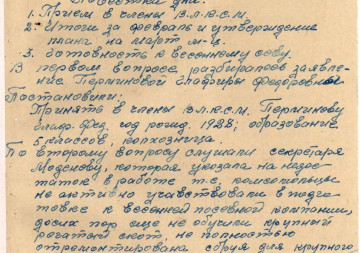 1. Прием в члены В.Л.К.С.М.
2. Итоги за февраль и утверждение
плана на март м-ц.
3. Готовность к весеннему севу.
В первом вопросе разбиралось заявле-
ние Перминовой Глафиры Федоровны
Постановили:
Принять в члены В.Л.К.С.М. Перминову
Глаф. Фед. год рожд. 1928; образование
5 классов, колхозница.
По второму вопросу слушали секретаря
которая указала на недос-
таток в работе т.е. комсомольцы
не активно учавствовали в подго-
товке к весенней посевной кампании,
до сих пор еще не обучили крупный
рогатый скот, не полностью
отремонтирована сбруя для крупного